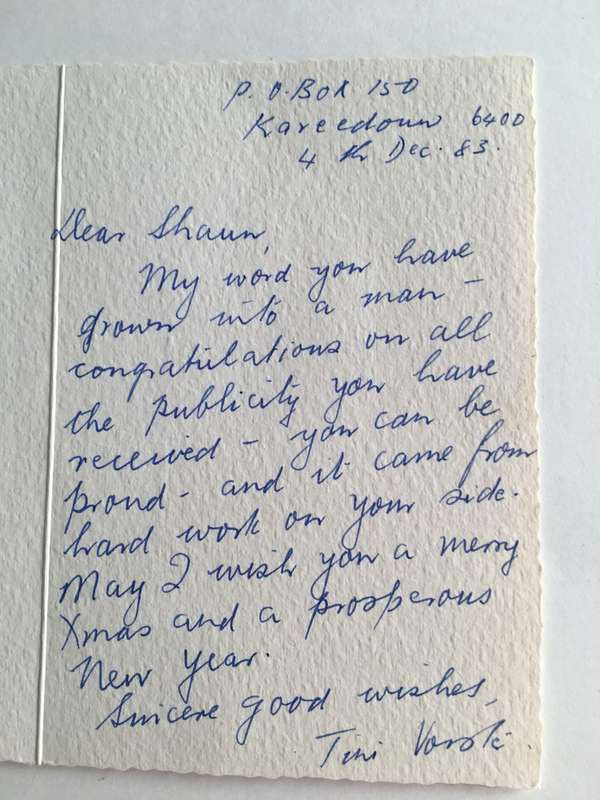 P.O.BOX 150
Kareedouw 6400
4th Dec. 83.
Dear Shaun,
My word you have
grown into a man -
congratulations on all
the publicity you have
received - you can be
proud - and it came from
hard work on your side.
May I wish you a merry
Xmas and a prosperous
New Year.
Sincere good wishes,
Tini